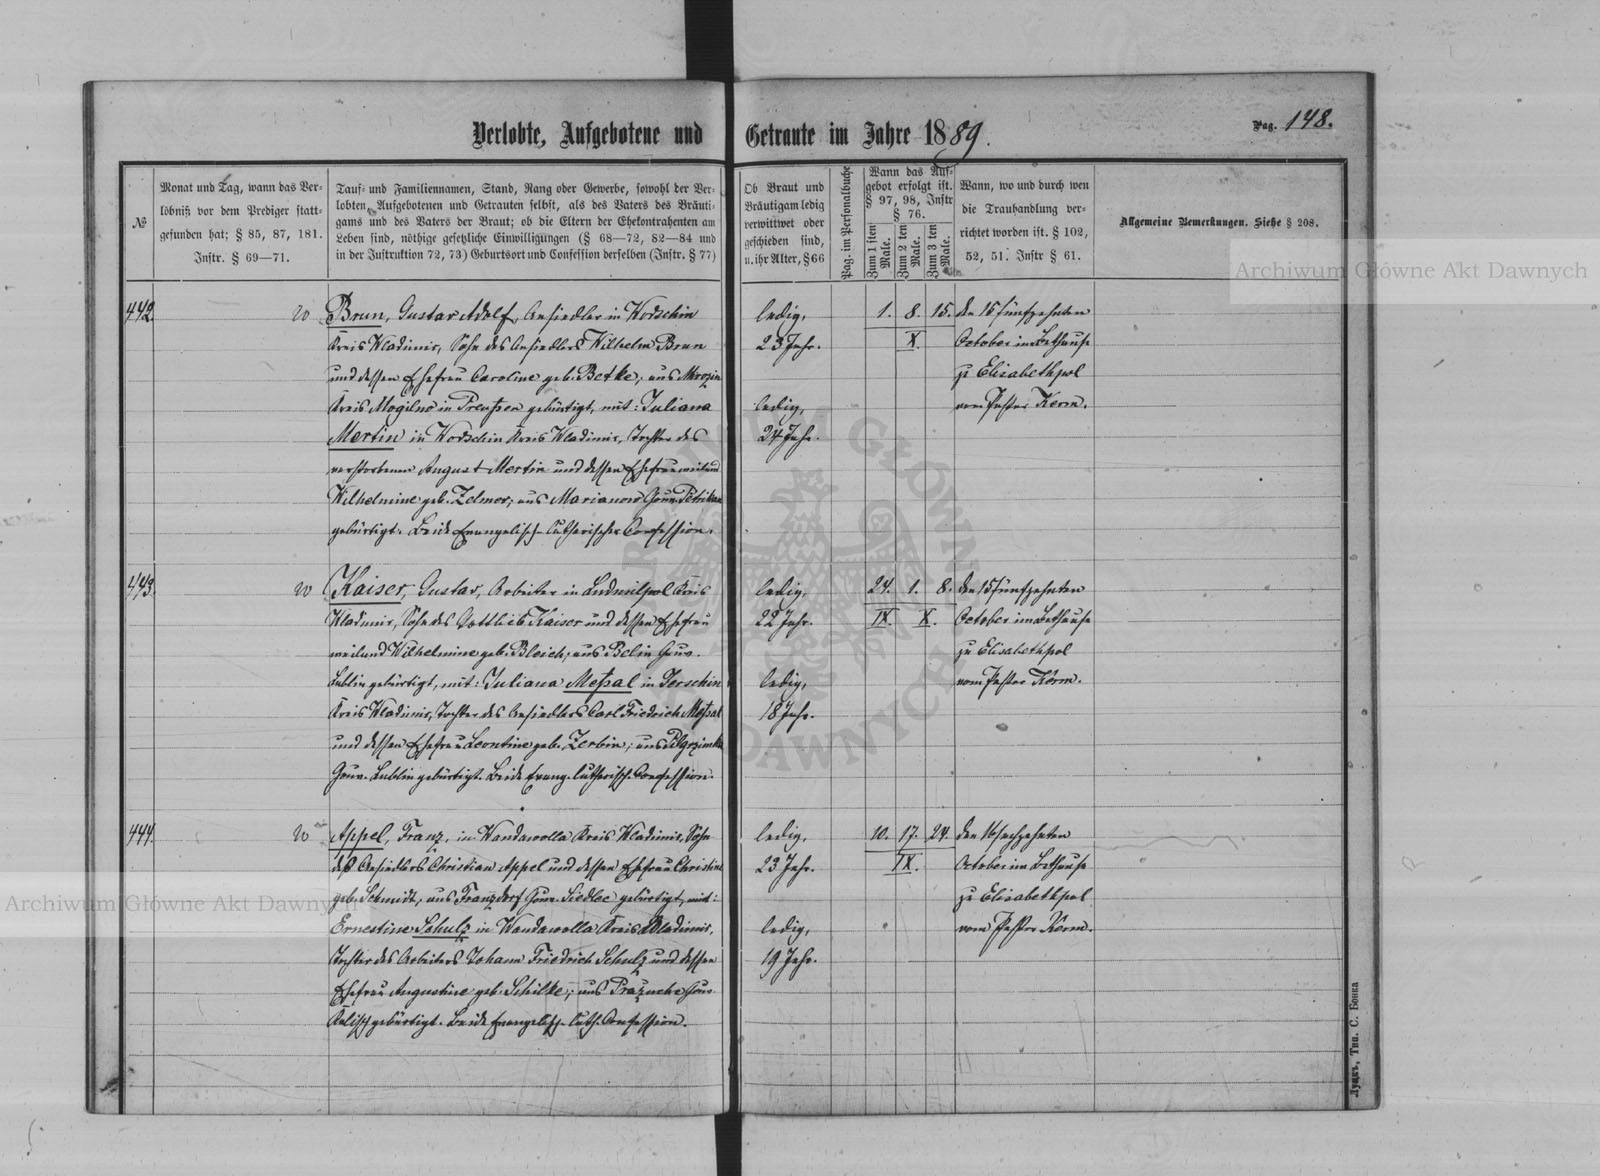 Verlobte, Aufgebotene und Getraute im Jahre 1889.
Pag. 148.
№
Monat und Tag, wann das Ver-
löbniß vor dem Prediger statt-
gefunden hat; § 85, 87, 181.
Instr. § 69—71.
Tauf- und Familiennamen, Stand, Rang oder Gewerbe, sowohl der Ver-
lobten, Aufgebotenen und Getrauten selbst, als des Vaters des Bräuti-
gams und des Vaters der Braut; ob die Eltern der Ehekontrahenten am
Leben sind, nöthige gesetzliche Einwilligungen (§ 68—72, 82—84 und
in der Justruktion 72, 73) Geburtsort und Confession derselben (Instr. § 77)
Ob Braut und
Bräutigam ledig
verwittwet oder
geschieden sind,
u. ihr Alter, § 66
Pag. im Personalbuche
Wann das Auf-
gebot erfolgt ist.
§ 97, 98, Instr
§ 76.
Zum 1 sten Male.
Zum 2 ten Male.
Zum 3 ten Male.
Wann, wo und durch wen
die Trauhandlung ver-
richtet worden ist. § 102,
52, 51. Instr § 61.
Allgemeine Bemerkungen. Siehe § 208.
442.
Brun, Gustav Adolf, Ansiedler in Wodschin
Kreis Wladimir, Sohn des Ansiedlers Wilhelm Brun
und dessen Ehefrau Caroline geb. Betke; aus Mrozin
Kreis Mogilno in Preußen gebürtigt, mit: Juliana
Mertin in Wodschin Kreis Wladimir, Tochter des
verstorbenen August Mertin und dessen Ehefrau weiland
Wilhelmine geb. Zelmer; aus Marianow Gouv. Petrikau
gebürtigt. Beide Evangelisch-Lutherischer Confession.
ledig,
23 Jahr.
ledig,
24 Jahr.
1. 8. 15.
X.
den 15 fünfzehnten
October im Bethause
zu Elisabethpol
vom Pastor Kerm.
443.
Kaiser, Gustav, Arbeiter in Ludwilpol Kreis
Wladimir, Sohn des Gottlieb Kaiser und dessen Ehefrau
weiland Wilhelmine geb. Bleich; aus Belin Gouv.
Lublin gebürtigt, mit: Juliana Meßal in Jerschin
Kreis Wladimir, Tochter des Ansiedlers Carl Friedrich Meßal
und dessen Ehefrau Leontine geb. Zerbin; aus Pilgrzimka
Gouv. Lublin gebürtigt. Beide Evang. Lutherisch. Confession.
ledig,
22 Jahr.
ledig,
18 Jahr.
24. 1. 8.
IX. X.
den 15 fünfzehnten
October im Bethause
zu Elisabethpol
vom Pastor Kerm.
444.
Appel, Franz, in Wandawolla Kreis Wladimir, Sohn
des Ansiedlers Christian Appel und dessen Ehefrau Christine
geb. Schmidt, aus Franzdorf Gouv. Siedlec gebürtigt, mit:
Ernestine Schulz in Wandawolla Kreis Wladimir,
Tochter des Arbeiters Johann Friedrich Schulz und dessen
Ehefrau Augustine geb. Schilke; aus Prazuche Gouv
Kalisch gebürtigt. Beide Evangelisch-Luth. Confession.
ledig,
23 Jahr.
ledig,
19 Jahr.
10. 17. 24.
IX.
den 16 sechzehnten
October im Bethause
zu Elisabethpol
vom Pastor Kerm.
Луцкъ, Тип. С. Бонка
Archiwum Główne Akt Dawnych
Archiwum Główne Akt Dawnych